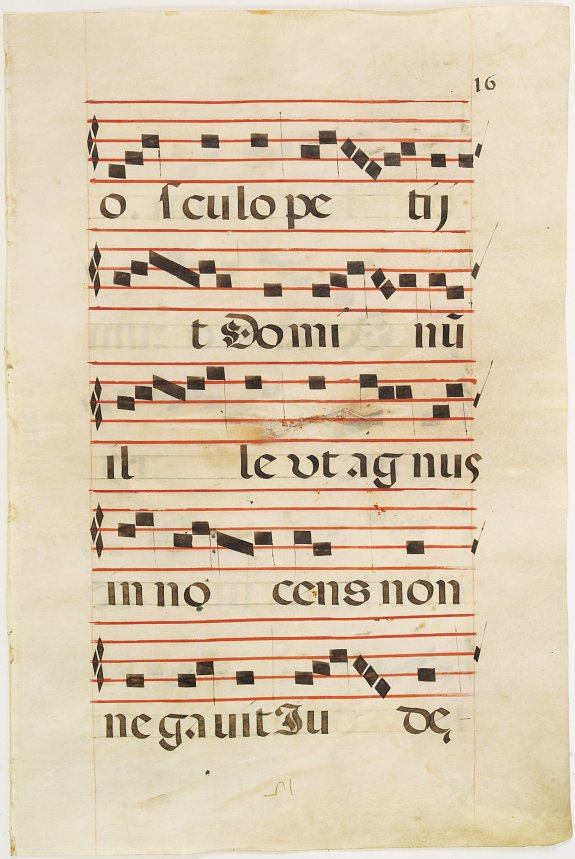 16
o sculo pe tij
t Domi nū
il le vt agnus
inno cens non
negauit Iu dę